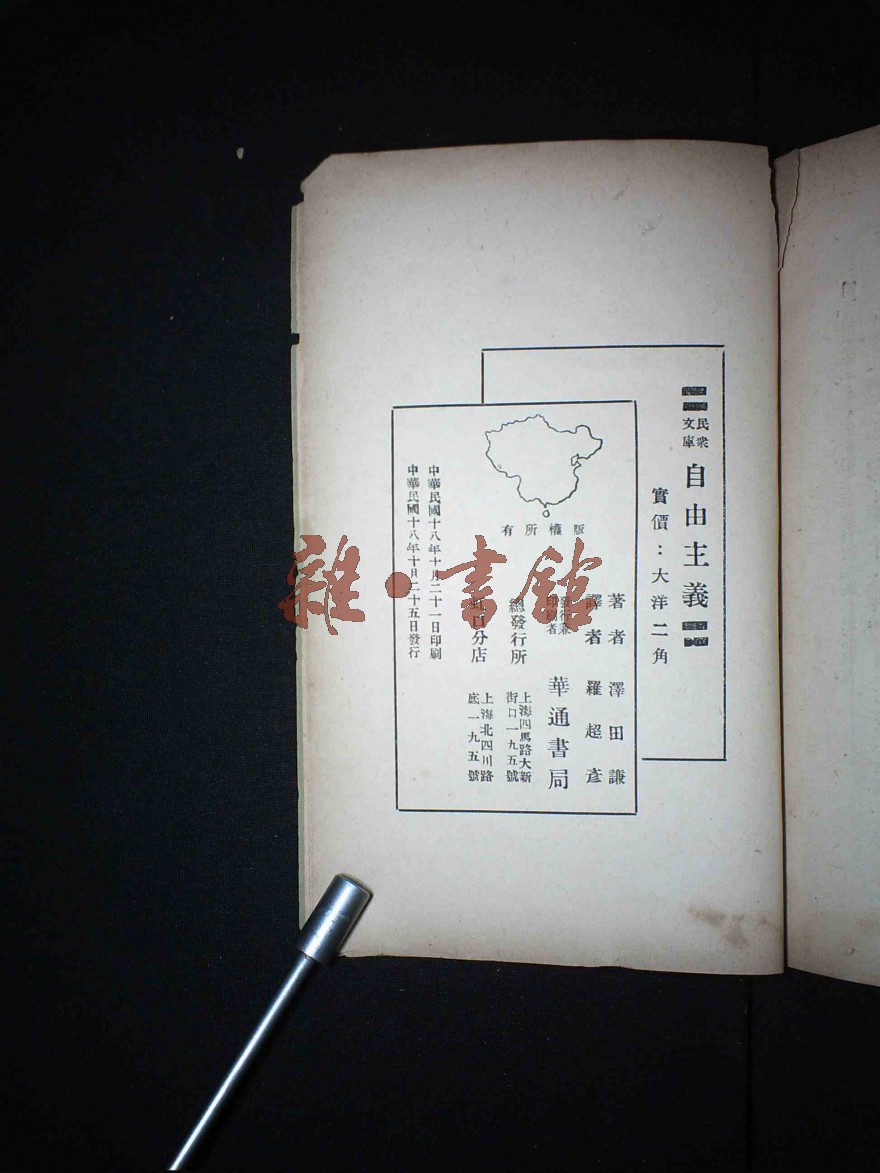 民衆
文庫
自由主義
實價：大洋二角
版權所有
著者 澤田謙
譯者 羅超彥
發行兼
印刷者
華通書局
總發行所
上海四馬路大新
街口一九五號
虹口分店
上海北四川路
底一九五號
中華民國十八年十月二十一日印刷
中華民國十八年十月二十五日發行
雜·書館